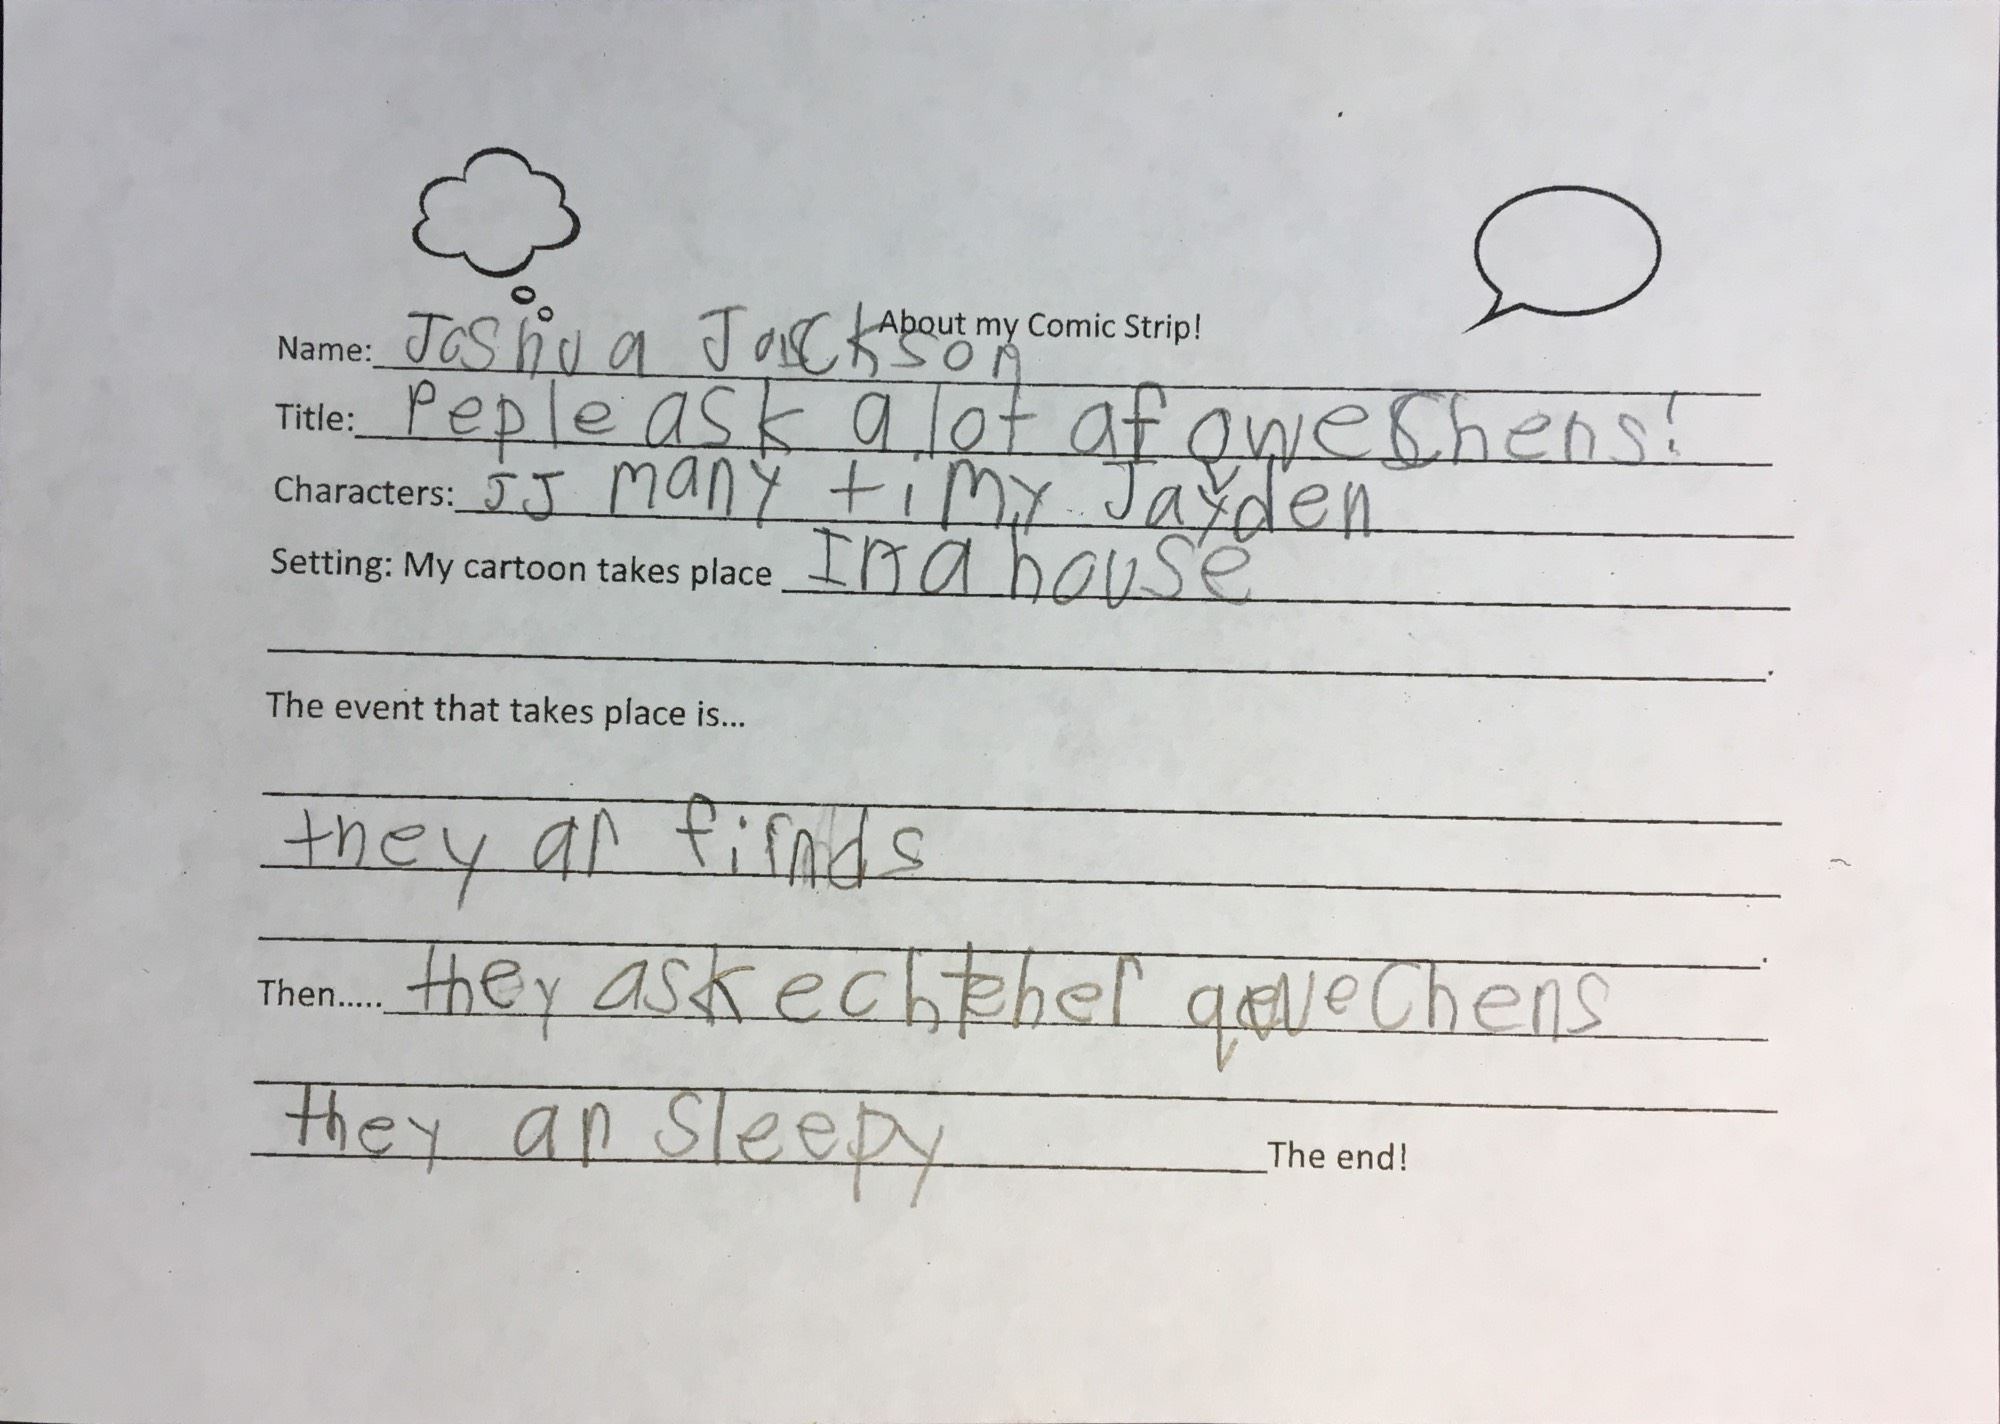 About my Comic Strip!
Name: Joshua Jackson
Title: Pepleask a lot af qweChens!
Characters: JJ many timy Jayden
Setting: My cartoon takes place In a house
The event that takes place is...
they ar firnds
Then..... they ask echther qweChens
they ar sleepy The end!